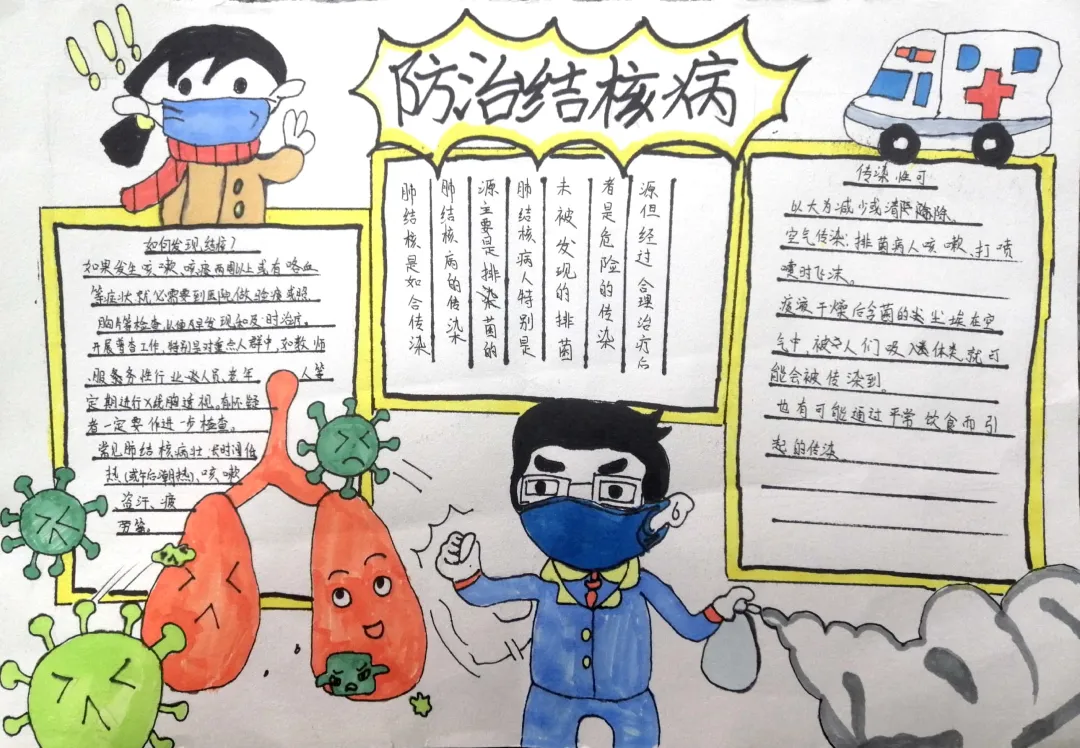 防治结核病
如何发现结核？
如果发生咳嗽、咳痰两周以上或有咯血
等症状就必需要到医院做验痰或照
胸片等检查，以便及早发现和及时治疗。
开展普查工作，特别是对重点人群中，如教师
、服务性行业人员老年 人等
定期进行X线胸透视。有怀疑
者一定要作进一步检查。
常见肺结核病壮：长时潮低
热（或午后潮热）、咳嗽
盗汗、疲
劳等。
肺结核是如合传染
肺结核病的传染
源主要是排染菌的
肺结核病人特别是
未被发现的排菌
者是危险的传染
源但经过合理治疗后
传染性可
以大为减少或消除。
空气传染：排菌病人咳嗽、打喷
嚏时飞沫。
痰液干燥后含菌的尘埃在空
气中，被人们吸入体类，就可
能会被传染到。
也有可能通过平常饮食而引
起的传染